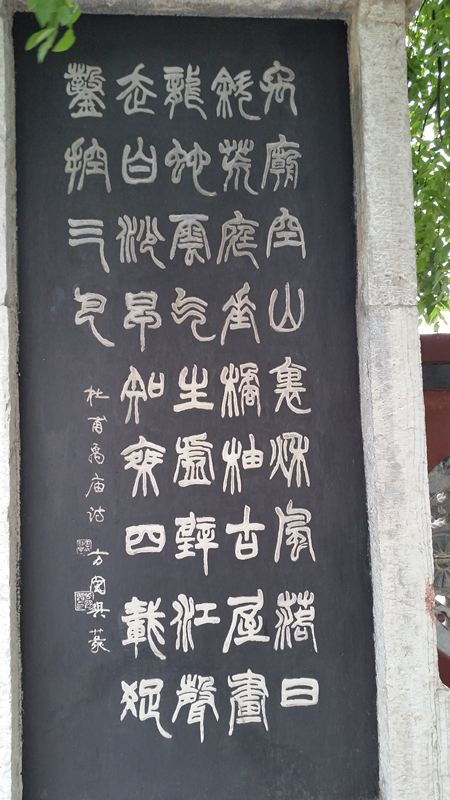 禹廟空山裏秋風落日
斜荒庭垂橘柚古屋畫
龍蛇雲气生虛壁江聲
走白沙早知乘四載疏
鑿控三巴
杜甫禹庙诗 方国篆